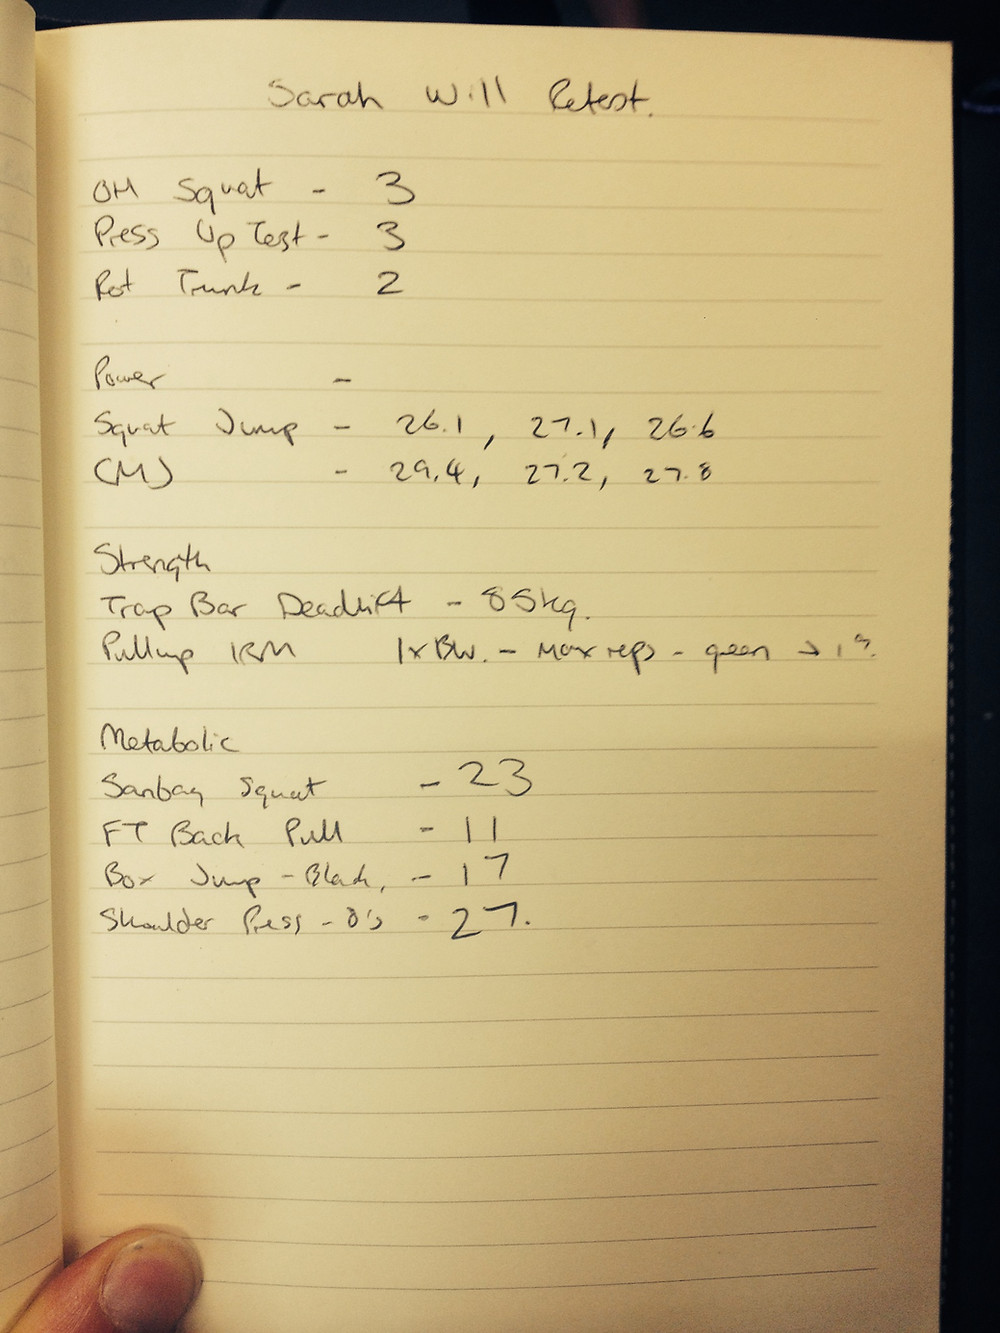 Sarah Will Retest.
OH Squat - 3
Press Up Test - 3
Rot Trunk - 2
Power -
Squat Jump - 26.1, 27.1, 26.6
CMJ - 29.4, 27.2, 27.8
Strength
Trap Bar Deadlift - 85kg.
Pullup 1RM 1xBW. - Max reps - green →
Metabolic
Sanbag Squat - 23
FT Back Pull - 11
Box Jump - Black, - 17
Shoulder Press - 8's - 27.